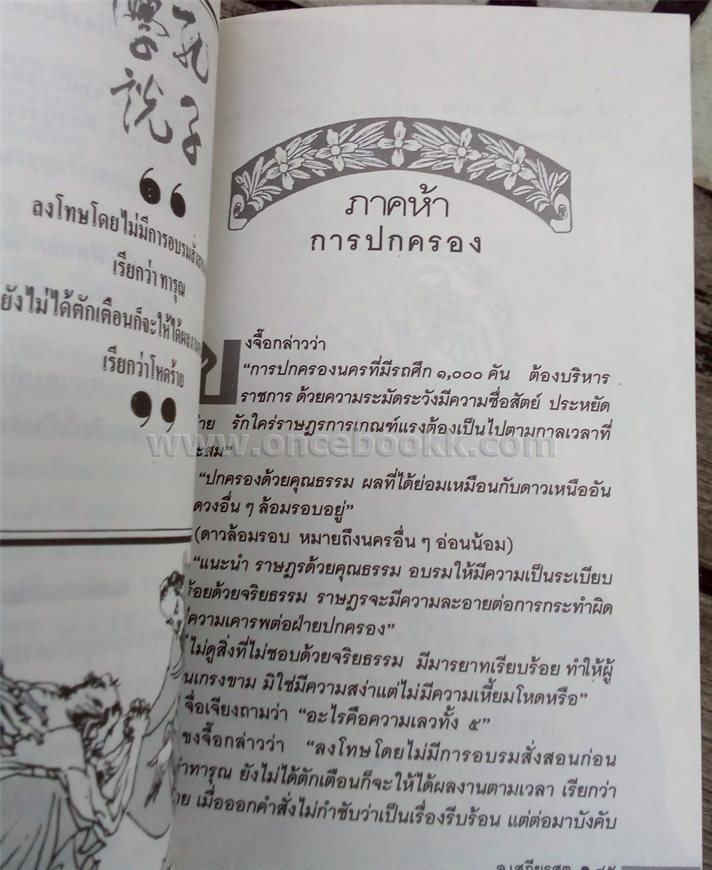 孔子
學說
“
ลงโทษโดยไม่มีการอบรมสั่งสอน
เรียกว่า ทารุณ
ยังไม่ได้ตักเตือนก็จะให้ได้ผลงาน
เรียกว่าโหดร้าย
”
ภาคห้า
การปกครอง
ขงจื๊อกล่าวว่า
“การปกครองนครที่มีรถศึก ๑,๐๐๐ คัน ต้องบริหาร
ราชการ ด้วยความระมัดระวังมีความซื่อสัตย์ ประหยัด
รักใคร่ราษฎรการเกณฑ์แรงต้องเป็นไปตามกาลเวลาที่
ะสม”
www.oncebookk.com
“ปกครองด้วยคุณธรรม ผลที่ได้ย่อมเหมือนกับดาวเหนืออัน
ดวงอื่น ๆ ล้อมรอบอยู่”
(ดาวล้อมรอบ หมายถึงนครอื่น ๆ อ่อนน้อม)
“แนะนำ ราษฎรด้วยคุณธรรม อบรมให้มีความเป็นระเบียบ
ร้อยด้วยจริยธรรม ราษฎรจะมีความละอายต่อการกระทำผิด
ความเคารพต่อฝ่ายปกครอง”
ไม่ดูสิ่งที่ไม่ชอบด้วยจริยธรรม มีมารยาทเรียบร้อย ทำให้ผู้
นเกรงขาม มิใช่มีความสง่าแต่ไม่มีความเหี้ยมโหดหรือ”
จื่อเจียงถามว่า “อะไรคือความเลวทั้ง ๕”
ขงจื๊อกล่าวว่า “ลงโทษโดยไม่มีการอบรมสั่งสอนก่อน
ว่าทารุณ ยังไม่ได้ตักเตือนก็จะให้ได้ผลงานตามเวลา เรียกว่า
าย เมื่อออกคำสั่งไม่กำชับว่าเป็นเรื่องรีบร้อน แต่ต่อมาบังคับ